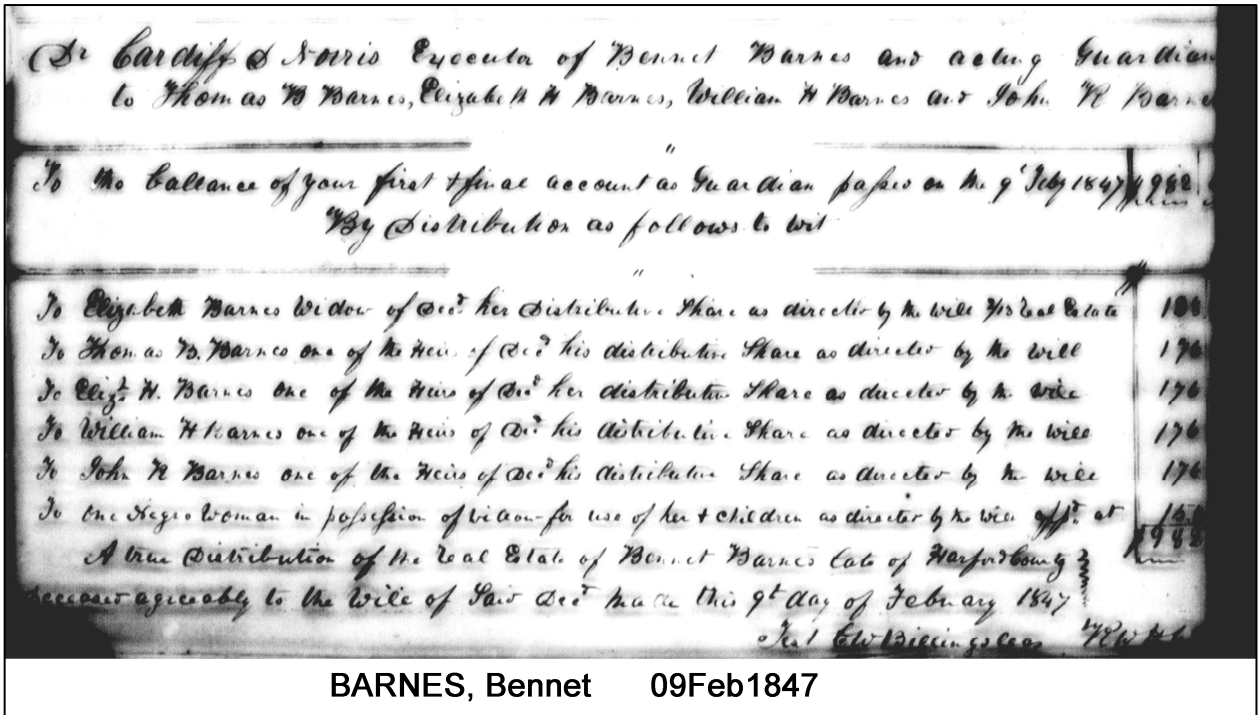 Dr Cardiff D Norris Executor of Bennet Barnes and acting Guardian
to Thomas B Barnes, Elizabeth H Barnes, William H Barnes and John R Barnes
"
To the ballance of your first & final account as Guardian passed on the 9th Feby 1847 $982
By Distribution as follows to wit
"
To Elizabeth Barnes Widow of Decd her Distributive Share as directed by the will 1/3 real Estate
To Thomas B. Barnes one of the Heirs of Decd his distributive Share as directed by the will 176
To Elizth H. Barnes one of the Heirs of Decd her distributive Share as directed by the will 176
To William H Barnes one of the Heirs of Decd his distributive Share as directed by the will 176
To John R Barnes one of the Heirs of Decd his distributive Share as directed by the will 176
To one Negro Woman in possession of widow for use of her & children as directed by the will at
$982
A true Distribution of the real Estate of Bennet Barnes late of Harford County
Deceased agreeably to the Will of Said Decd made this 9th day of February 1847
Test EW Billingslea
BARNES, Bennet 09Feb1847